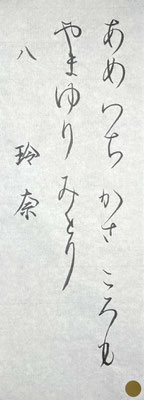 あめつち かさ ころも
やまゆり みとり
八 玲奈